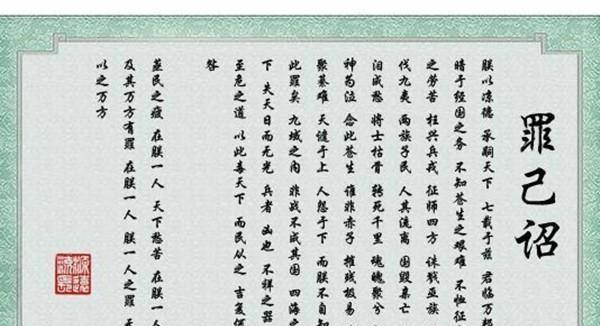 罪己诏
朕以凉德 承嗣天下 七载于兹 君临万
暗于经国之务 不知苍生之艰难 不恤征
之劳苦 枉兴兵戎 征师四方 诛戮巫族
伐九夷 两族子民 人其流离 国毁巢亡
泪成愁 将士枯骨 转死千里 魂魄聚兮
神为泣 念此苍生 谁非赤子 摧残极易
聚难 天谴于上 人怨于下 而朕不自知
此罪矣 九域之内 非战不成其国 四海之
下 失天日而无光 兵者 凶也 不祥之器
至危之道 以此毒天下 而民从之 言
咎
蒸民之疲 在朕一人 天下愁苦 在朕一人
及其万方有罪 在朕一人 朕一人之罪 无
以之万方